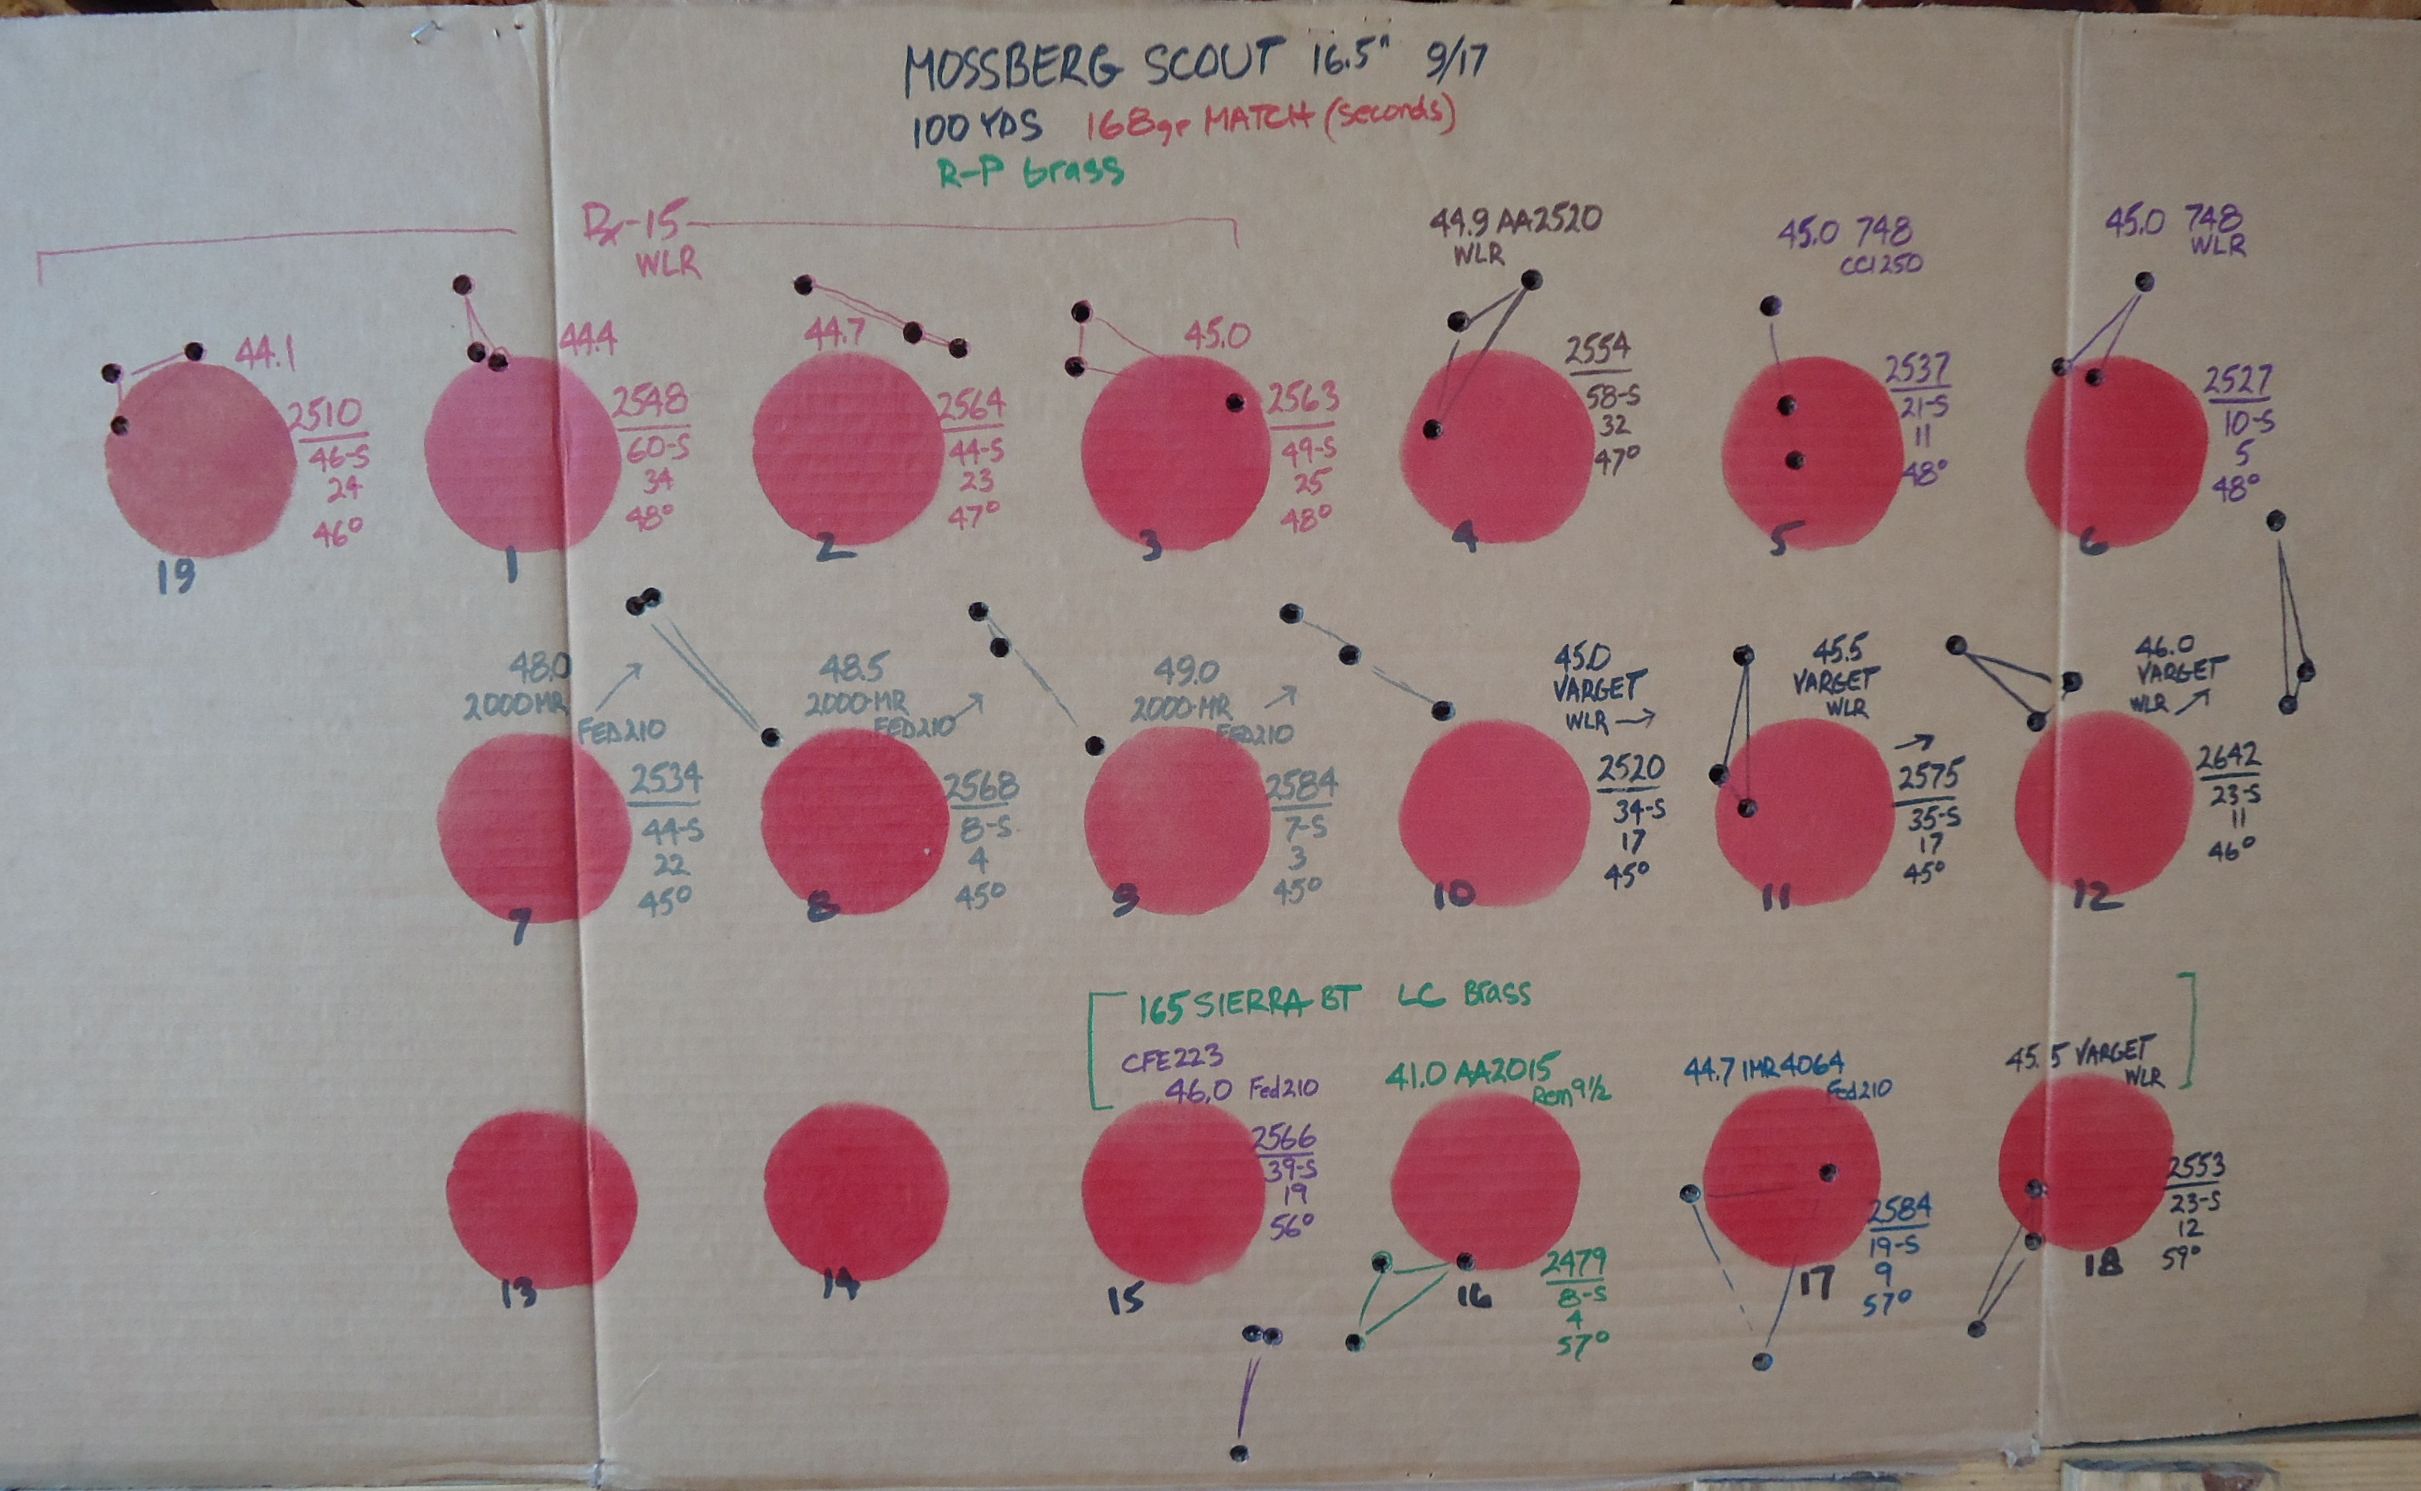 MOSSBERG SCOUT 16.5" 9/17
100 YDS 168gr MATCH (seconds)
R-P brass
Rx-15
WLR
44.1
2510
46-S
24
46°
19
44.4
2548
60-S
34
48°
1
44.7
2564
44-S
23
47°
2
45.0
2563
49-S
25
48°
3
44.9 AA2520
WLR
2554
58-S
32
47°
4
45.0 748
CCI250
2537
21-S
11
48°
5
45.0 748
WLR
2527
10-S
5
48°
6
48.0
2000MR
FED210
2534
44-S
22
45°
7
48.5
2000-MR
FED210
2568
8-S
4
45°
8
49.0
2000-MR
FED210
2584
7-S
3
45°
9
45.0
VARGET
WLR →
2520
34-S
17
45°
10
45.5
VARGET
WLR
→
2575
35-S
17
45°
11
46.0
VARGET
WLR ↗
2642
23-S
11
46°
12
13
14
165 SIERRA BT LC Brass
CFE223
46.0 Fed210
2566
39-S
19
56°
15
41.0 AA2015
Rem 9½
2479
8-S
4
57°
16
44.7 IMR4064
Fed210
2584
19-S
9
57°
17
45.5 VARGET
WLR
2553
23-S
12
59°
18